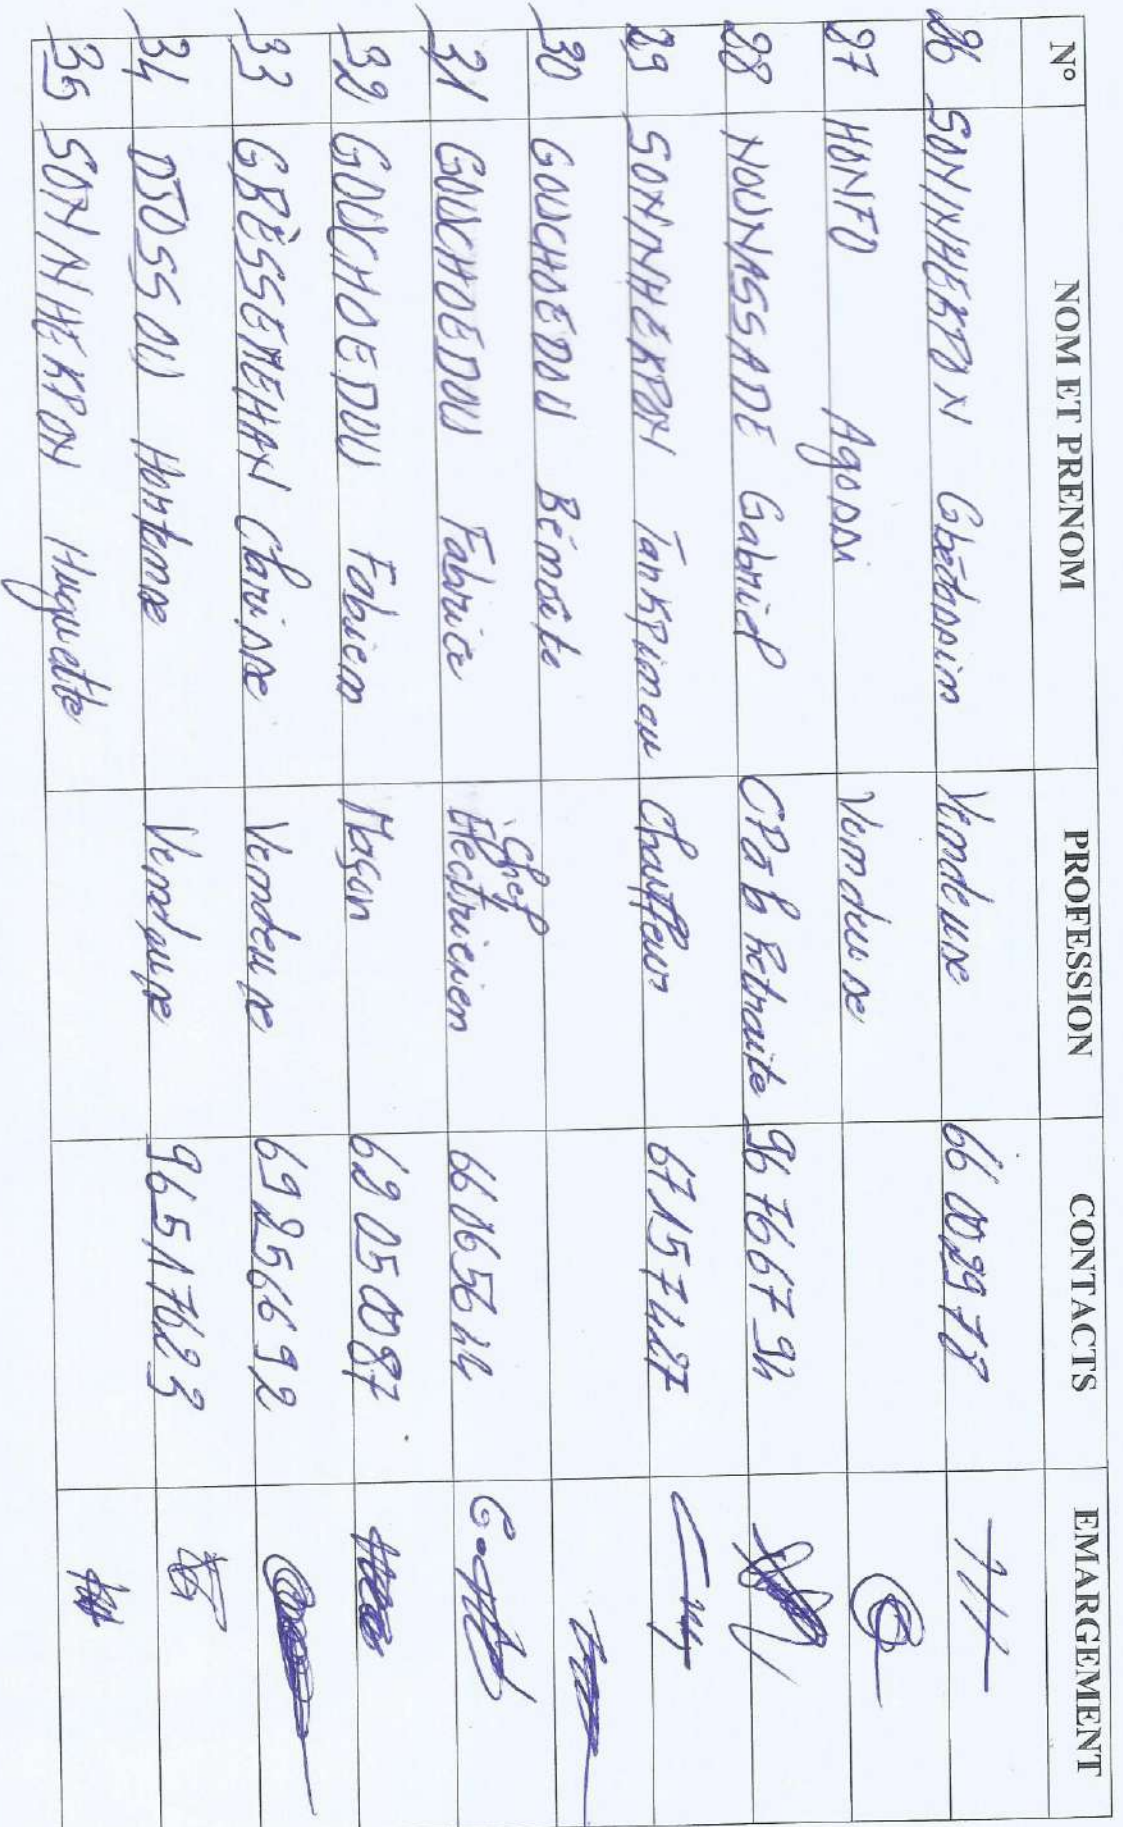 N° NOM ET PRENOM PROFESSION CONTACTS EMARGEMENT
26 SONNHEKPON Gbètossim Vendeuse 66 00 29 78
27 HONFO Agossi Vendeuse
28 NOUNASSADE Gabriel CPa la Retraite 96 76 67 94
29 SONNHEKPON Tankpinou Chauffeur 67 15 74 27
30 GOUCHOEDOU Bénoite
31 GOUCHOEDOU Fabrice Chef Electricien 66 06 56 44
32 GOUCHOEDOU Fabien Maçon 62 05 00 87
33 GBÈSSEMEHAN Clarisse Vendeuse 69 25 66 92
34 DJOSSOU Hontonse Vendeuse 96 51 76 23
35 SONNHEKPON Huguette